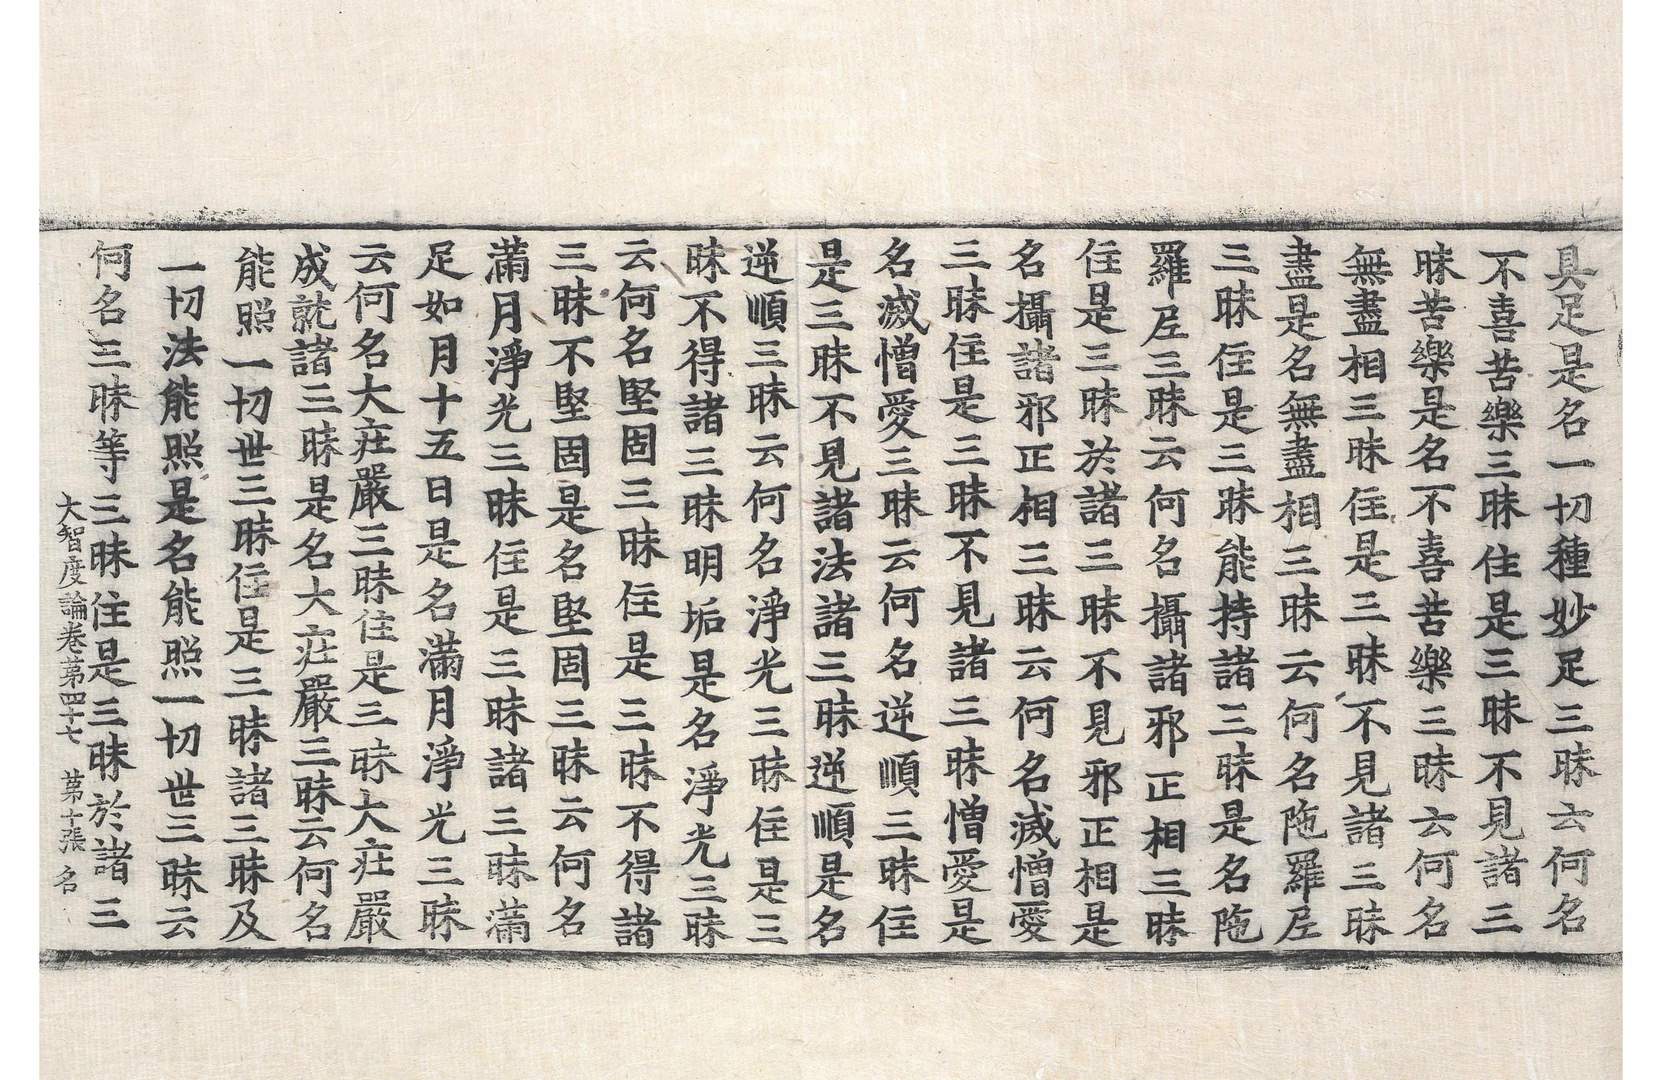 具足是名一切種妙足三昧云何名
不喜苦樂三昧住是三昧不見諸三
昧苦樂是名不喜苦樂三昧云何名
無盡相三昧住是三昧不見諸三昧
盡是名無盡相三昧云何名陁羅尼
三昧住是三昧能持諸三昧是名陁
羅尼三昧云何名攝諸邪正相三昧
住是三昧於諸三昧不見邪正相是
名攝諸邪正相三昧云何名滅憎愛
三昧住是三昧不見諸三昧憎愛是
名滅憎愛三昧云何名逆順三昧住
是三昧不見諸法諸三昧逆順是名
逆順三昧云何名淨光三昧住是三
昧不得諸三昧明垢是名淨光三昧
云何名堅固三昧住是三昧不得諸
三昧不堅固是名堅固三昧云何名
滿月淨光三昧住是三昧諸三昧滿
足如月十五日是名滿月淨光三昧
云何名大莊嚴三昧住是三昧大莊嚴
成就諸三昧是名大莊嚴三昧云何名
能照一切世三昧住是三昧諸三昧及
一切法能照是名能照一切世三昧云
何名三昧等三昧住是三昧於諸三
大智度論卷第四十七 第十張 名